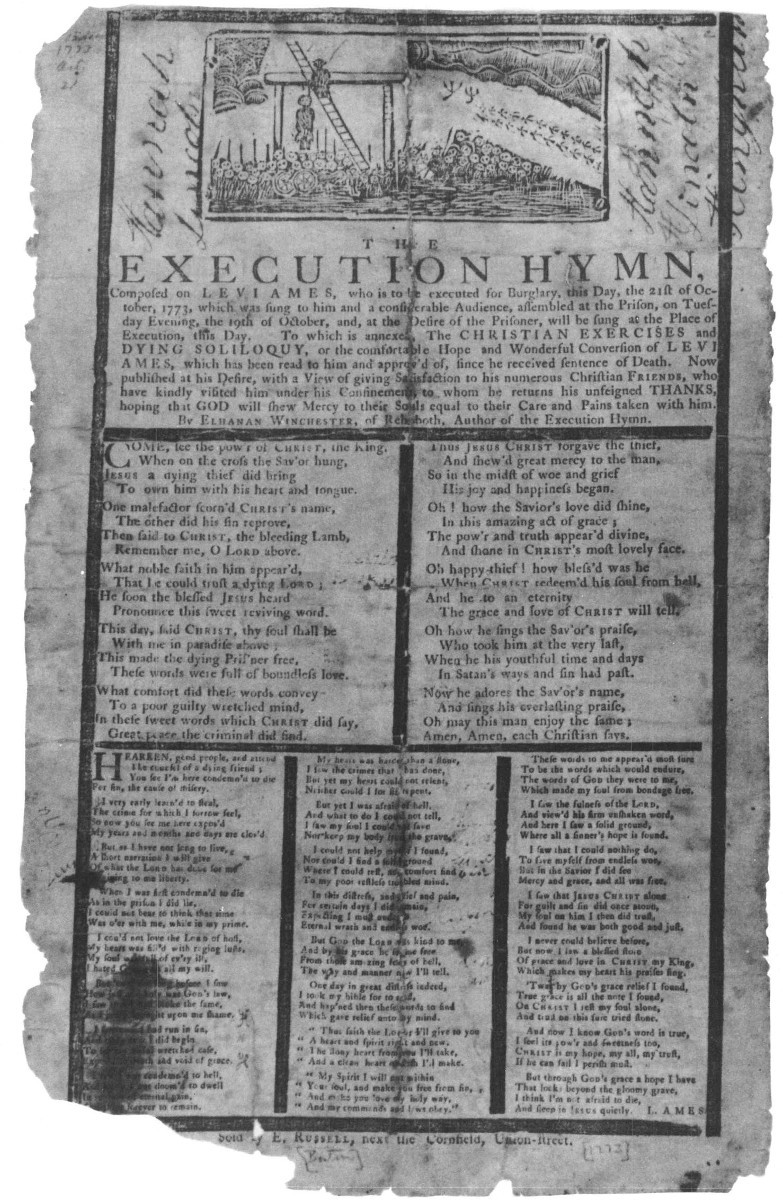 1773
Hannah
Lincoln
Hannah
Lincoln
THE
EXECUTION HYMN,
Composed on LEVI AMES, who is to be executed for Burglary, this Day, the 21ſt of Oc-
tober, 1773, which was ſung to him and a conſiderable Audience, aſſembled at the Priſon, on Tueſ-
day Evening, the 19th of October, and, at the Deſire of the Priſoner, will be ſung at the Place of
Execution, this Day. To which is annexed, The CHRISTIAN EXERCISES and
DYING SOLILOQUY, or the comfortable Hope and Wonderful Converſion of LEVI
AMES, which has been read to him and approv'd of, ſince he received ſentence of Death. Now
publiſhed at his Deſire, with a View of giving Satisfaction to his numerous Chriſtian FRIENDS, who
have kindly viſited him under his Confinement, to whom he returns his unfeigned THANKS,
hoping that GOD will ſhew Mercy to their Souls equal to their Care and Pains taken with him.
By ELHANAN WINCHESTER, of Rehoboth, Author of the Execution Hymn.
COME, ſee the pow'r of CHRIST, the King,
When on the croſs the Sav'or hung,
JESUS a dying thief did bring
To own him with his heart and tongue.
One malefactor ſcorn'd CHRIST's name,
The other did his ſin reprove,
Then ſaid to CHRIST, the bleeding Lamb,
Remember me, O LORD above.
What noble faith in him appear'd,
That he could truſt a dying LORD;
He ſoon the bleſſed JESUS heard
Pronounce this ſweet reviving word.
This day, ſaid CHRIST, thy ſoul ſhall be
With me in paradiſe above;
This made the dying Priſ'ner free,
Theſe words were full of boundleſs love.
What comfort did theſe words convey
To a poor guilty wretched mind,
In theſe ſweet words which CHRIST did ſay,
Great peace the criminal did find.
Thus JESUS CHRIST forgave the thief,
And ſhew'd great mercy to the man,
So in the midſt of woe and grief
His joy and happineſs began.
Oh! how the Savior's love did ſhine,
In this amazing act of grace;
The pow'r and truth appear'd divine,
And ſhone in CHRIST's moſt lovely face.
Oh happy thief! how bleſs'd was he
When CHRIST redeem'd his ſoul from hell,
And he to an eternity
The grace and love of CHRIST will tell.
Oh how he ſings the Sav'or's praiſe,
Who took him at the very laſt,
When he his youthful time and days
In Satan's ways and ſin had paſt.
Now he adores the Sav'or's name,
And ſings his everlaſting praiſe,
Oh may this man enjoy the ſame;
Amen, Amen, each Chriſtian ſays.
HEARKEN, good people, and attend
The counſel of a dying friend;
You ſee I'm here condemn'd to die
For ſin, the cauſe of miſery.
I very early learn'd to ſteal,
The crime for which I ſorrow feel,
So now you ſee me here expos'd
My years and months and days are clos'd.
But as I have not long to live,
A ſhort narration I will give
Of what the LORD has done for me
to me liberty.
When I was firſt condemn'd to die
As in the priſon I did lie,
I could not bear to think that time
Was o'er with me, while in my prime.
I cou'd not love the LORD of hoſt,
My heart was fill'd with raging luſts,
My ſoul was full of ev'ry ill,
I hated all my will.
But before I ſaw
How holy was God's law,
the ſame,
upon me ſhame.
had run in ſin,
I did begin
wretched caſe,
and void of grace.
condemn'd to hell,
doom'd to dwell
eternal pain,
forever to remain.
My heart was harder than a ſtone,
I ſaw the crimes that I has done,
But yet my heart could not relent,
Neither could I for ſin repent.
But yet I was afraid of hell,
And what to do I could not tell,
I ſaw my ſoul I could not ſave
Nor keep my body from the grave.
I could not help myſelf I found,
Nor could I find a ſolid ground
Where I could reſt, no comfort find
To my poor reſtleſs troubled mind.
In this diſtreſs, and grief and pain,
For certain days I did remain,
Expecting I muſt
Eternal wrath and endleſs woe.
But GOD the LORD was kind to me,
And by his grace he ſet me free
From theſe amazing fears of hell,
The way and manner now I'll tell.
One day in great diſtreſs indeed,
I took my bible for to read,
And hap'ned then theſe words to find
Which gave relief unto my mind.
" Thus ſaith the LORD, I'll give to you
" A heart and ſpirit right and new.
" The ſtony heart from you I'll take,
" And a clean heart in you I'd make.
" My Spirit I will put within
" Your ſoul, and make you free from ſin,
" And make you love my holy way,
" And my commands and laws obey."
Theſe words to me appear'd moſt ſure
To be the words which would endure,
The words of God they were to me,
Which made my ſoul from bondage free.
I ſaw the fulneſs of the LORD,
And view'd his firm unſhaken word,
And here I ſaw a ſolid ground,
Where all a ſinner's hope is found.
I ſaw that I could nothing do,
To ſave myſelf from endleſs woe,
But in the Savior I did ſee
Mercy and grace, and all was free.
I ſaw that JESUS CHRIST alone
For guilt and ſin did once atone,
My ſoul on him I then did truſt,
And found he was both good and juſt.
I never could believe before,
But now I ſaw a bleſſed ſtore
Of grace and love in CHRIST my King,
Which makes my heart his praiſes ſing.
'Twas by God's grace relief I found,
True grace is all the note I ſound,
On CHRIST I reſt my ſoul alone,
And truſt on this ſure tried ſtone.
And now I know God's word is true,
I feel its pow'r and ſweetneſs too,
CHRIST is my hope, my all, my truſt,
If he can fail I periſh muſt.
But through God's grace a hope I have
That looks beyond the gloomy grave,
I think I'm not afraid to die,
And ſleep in JESUS quietly. L. AMES
Sold by E. RUSSELL, next the Cornfield, Union-ſtreet.
[Boston]
[1773]